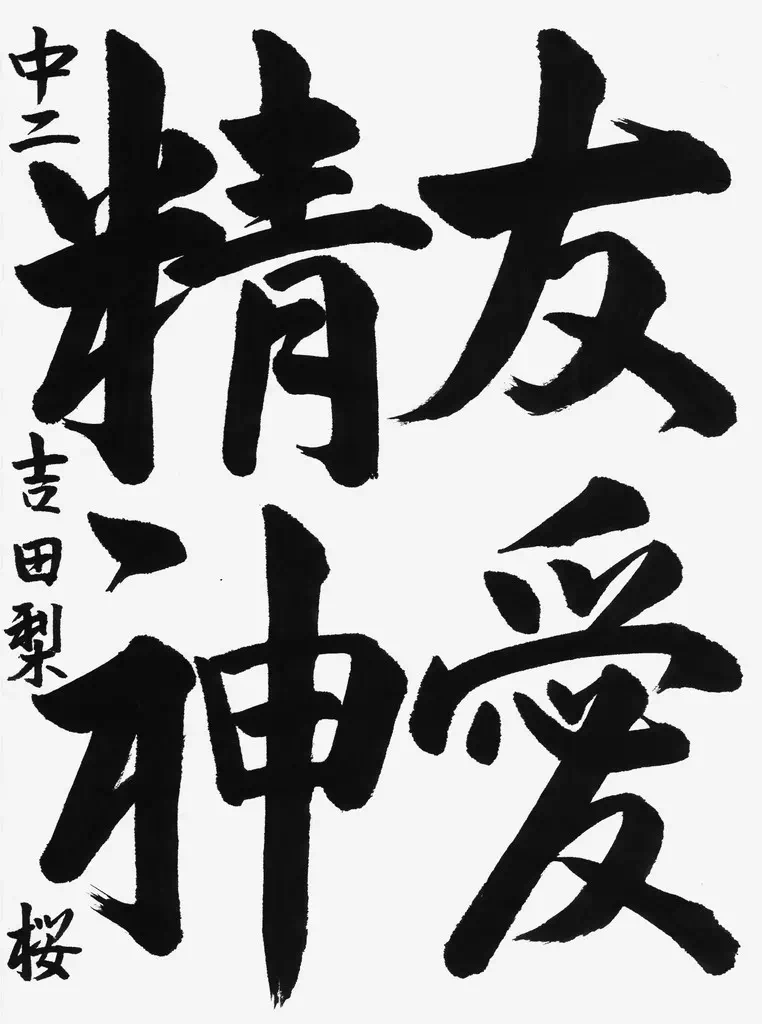 友愛
精神
中二 吉田梨桜